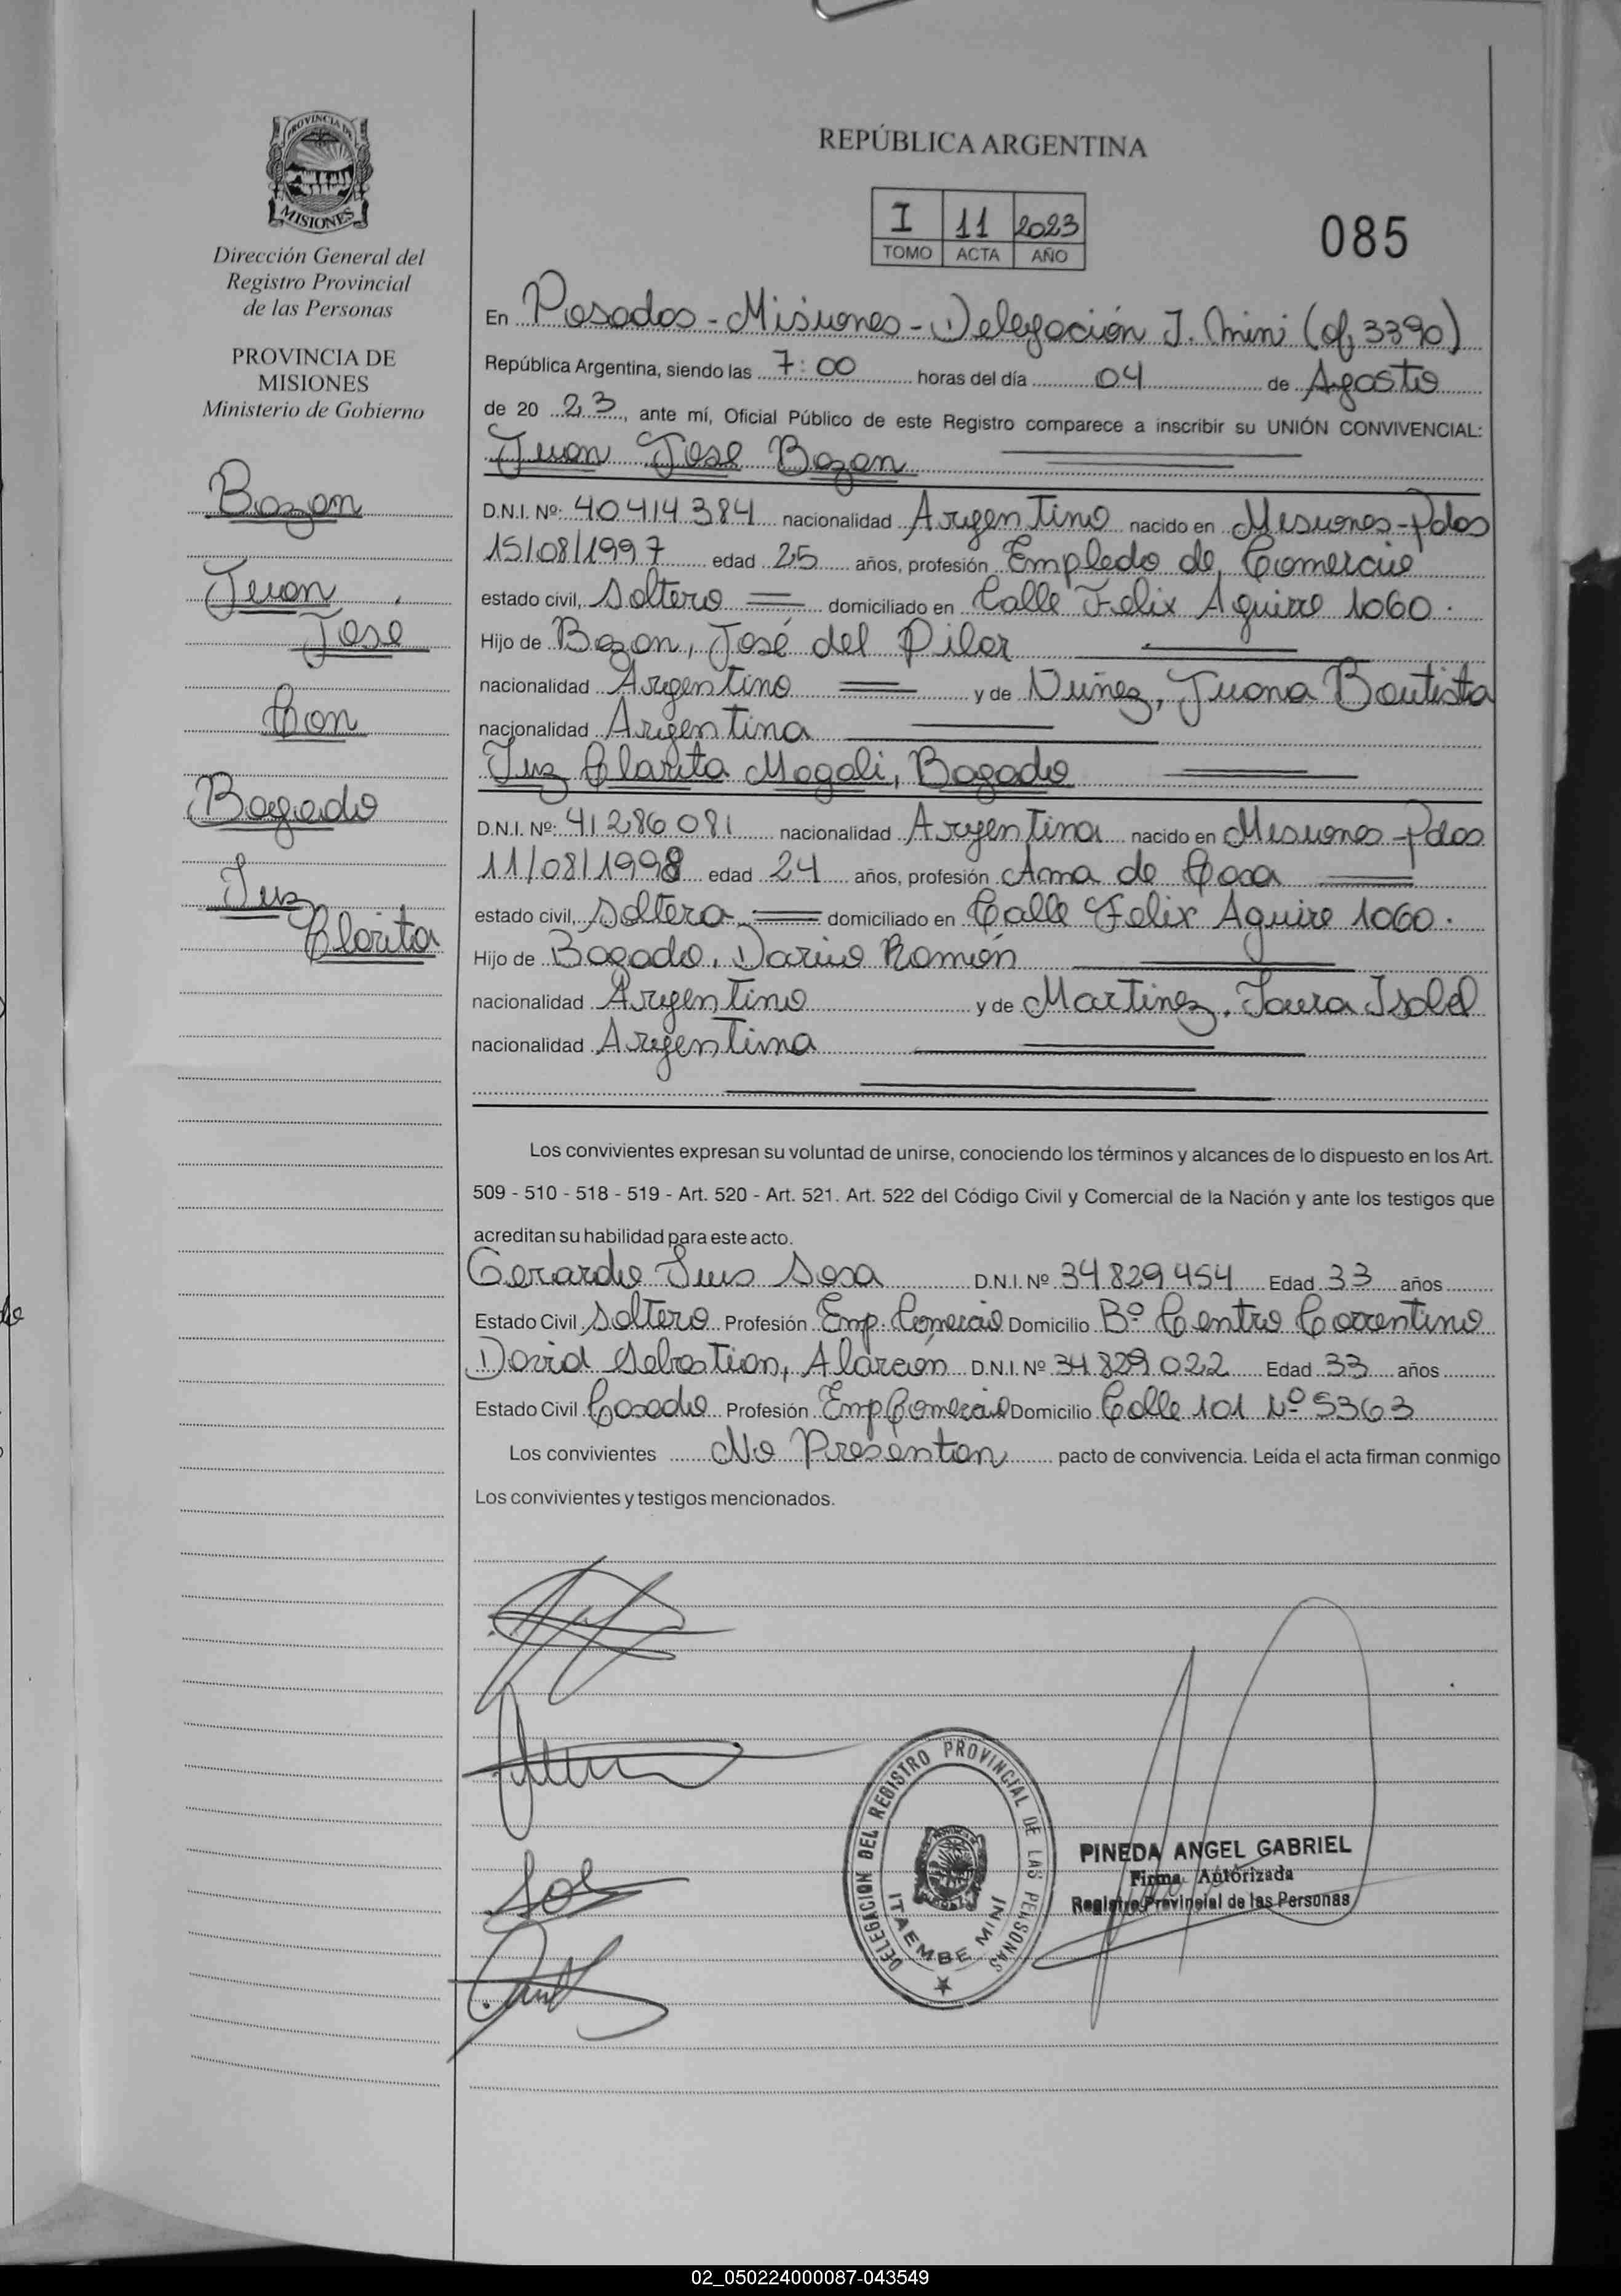 PROVINCIA DE
MISIONES
Dirección General del
Registro Provincial
de las Personas
PROVINCIA DE
MISIONES
Ministerio de Gobierno
Bozon
Juan
Jose
Con
Bogado
Luz
Clarita
REPÚBLICA ARGENTINA
I 11 2023
TOMO ACTA AÑO
085
En Posadas - Misiones - Delegación I. Mini (of. 3390)
República Argentina, siendo las 7:00 horas del día 04 de Agosto
de 20 23, ante mí, Oficial Público de este Registro comparece a inscribir su UNIÓN CONVIVENCIAL:
Juan Jose Bozon
D.N.I. Nº: 40414384 nacionalidad Argentino nacido en Misiones - Pdas
15/08/1997 edad 25 años, profesión Empledo de Comercio
estado civil, Soltero domiciliado en Calle Felix Aguirre 1060.
Hijo de Bozon, José del Pilar
nacionalidad Argentino y de Nuñez, Juana Bautista
nacionalidad Argentina
Luz Clarita Magali, Bogado
D.N.I. Nº: 41286081 nacionalidad Argentina nacido en Misiones - Pdas
11/08/1998 edad 24 años, profesión Ama de Casa
estado civil, Soltera domiciliado en Calle Felix Aguire 1060.
Hijo de Bogado, Dario Ramón
nacionalidad Argentino y de Martinez, Laura Isabel
nacionalidad Argentina
Los convivientes expresan su voluntad de unirse, conociendo los términos y alcances de lo dispuesto en los Art.
509 - 510 - 518 - 519 - Art. 520 - Art. 521. Art. 522 del Código Civil y Comercial de la Nación y ante los testigos que
acreditan su habilidad para este acto.
Gerardo Luis Sosa D.N.I. Nº 34829454 Edad 33 años
Estado Civil Soltero Profesión Emp. Comercio Domicilio Bº Centro Correntino
David Sebastian, Alarcón D.N.I. Nº 34.829.022 Edad 33 años
Estado Civil Casado Profesión Emp Comercio Domicilio Calle 101 Nº 5363
Los convivientes No Presentan pacto de convivencia. Leída el acta firman conmigo
Los convivientes y testigos mencionados.
DELEGACION DEL REGISTRO PROVINCIAL DE LAS PERSONAS
ITAEMBE MINI
PINEDA ANGEL GABRIEL
Firma Autorizada
Registro Provincial de las Personas
02_050224000087-043549